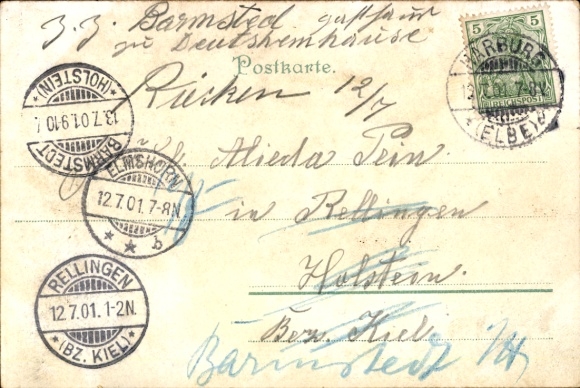 z. Z. Barmsted gasthaus
zu Deutshemhause
Postkarte.
Rücken 12/7
5 5
REICHSPOST
HARBURG
12.7.01.7-8V.
* (ELBE) *
* (HOLSTEIN) *
13.7.01.9-10
BARMSTEDT
ELMSHORN
12.7.01.7-8N
* * b
Alieda Pein
in Rellingen
Holstein.
Bez. Kiel
Barmstedt
RELLINGEN
12.7.01.1-2N.
* (BZ. KIEL) *